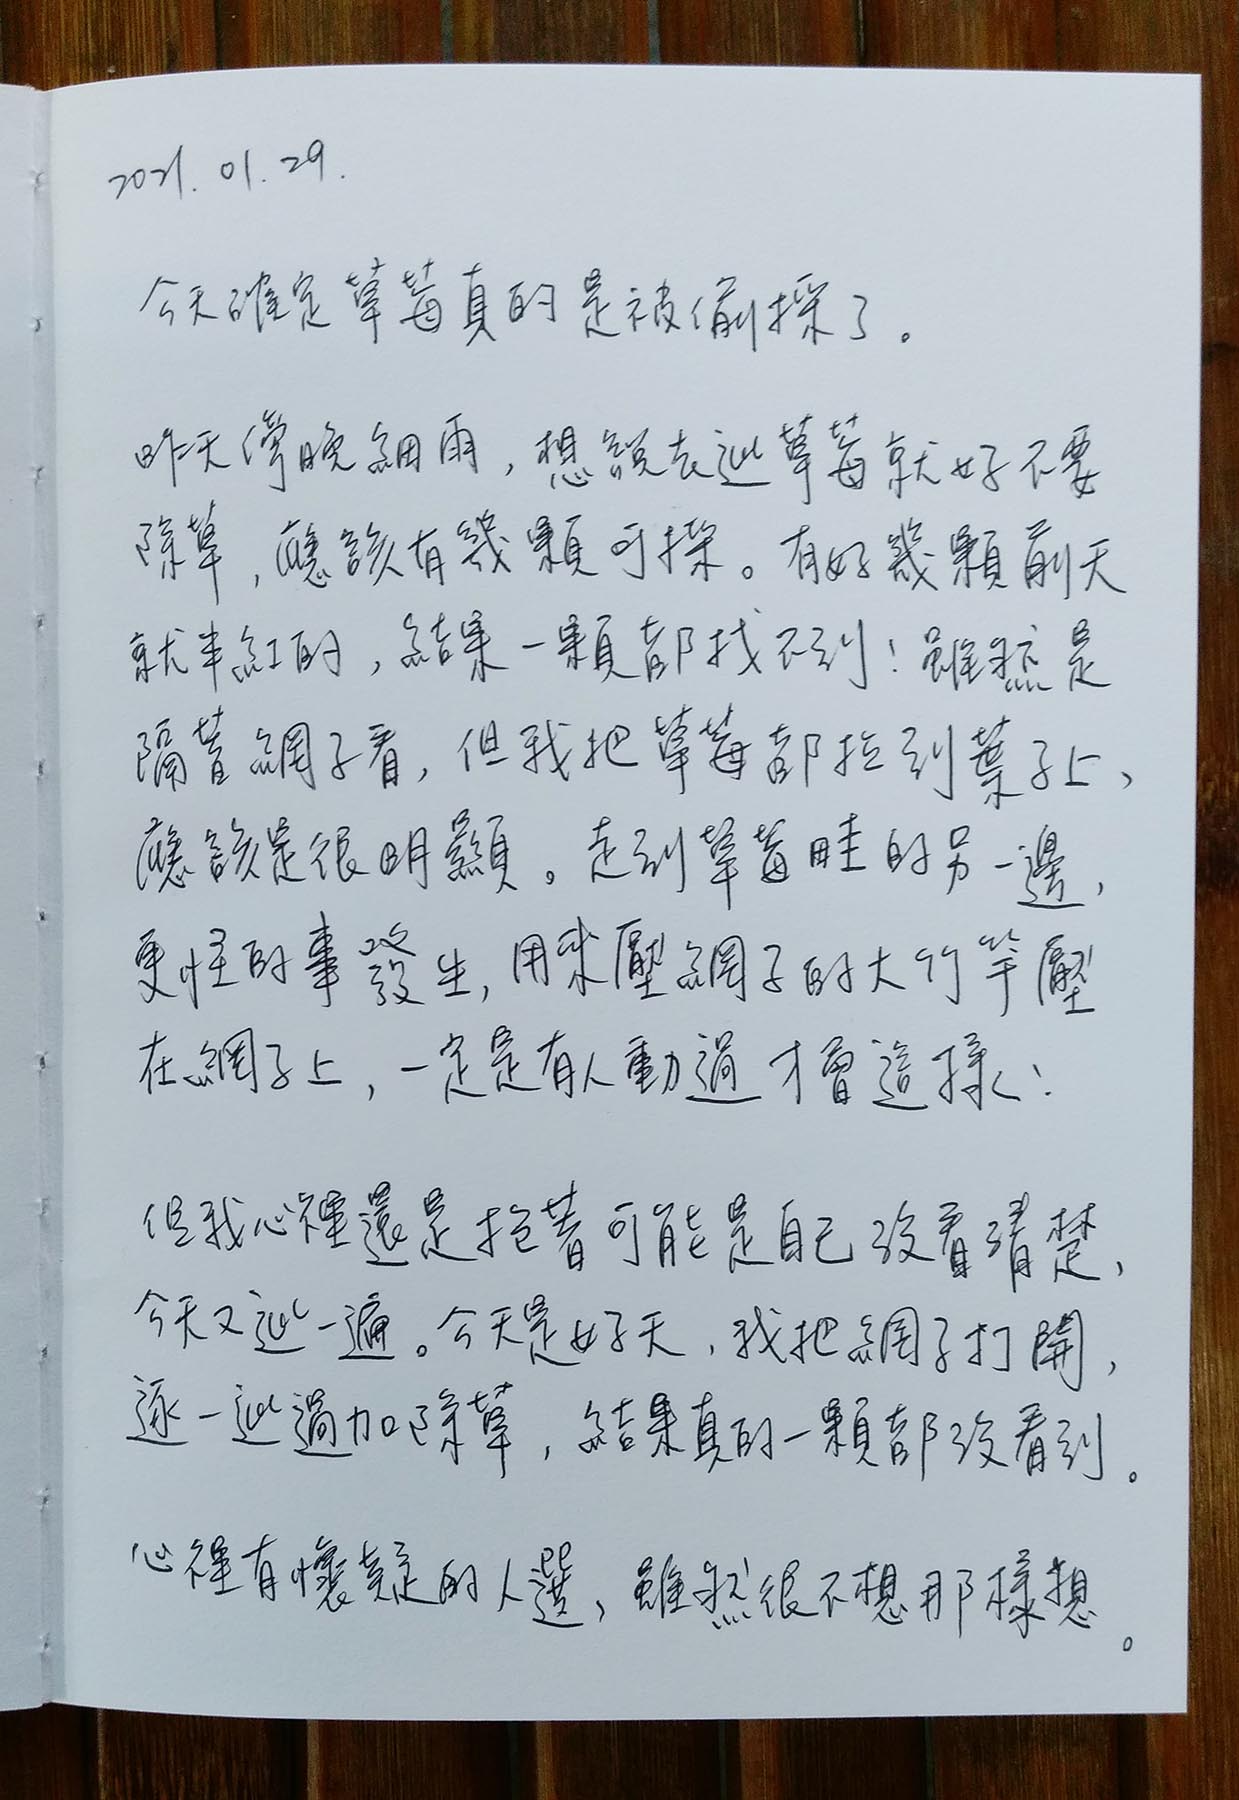 2021.01.29.
今天確定草莓真的是被偷採了。
昨天傍晚細雨,想說去巡草莓就好不要
除草,應該有幾顆可採。有好幾顆前天
就半紅的,結果一顆都找不到!雖然是
隔著網子看,但我把草莓都拉到葉子上,
應該是很明顯。走到草莓畦的另一邊,
更怪的事發生,用來壓網子的大竹竿壓
在網子上,一定是有人動過才會這樣!
但我心裡還是抱著可能是自己沒看清楚,
今天又巡一遍。今天是好天,我把網子打開,
逐一巡過加除草,結果真的一顆都沒看到。
心裡有懷疑的人選,雖然很不想那樣想。